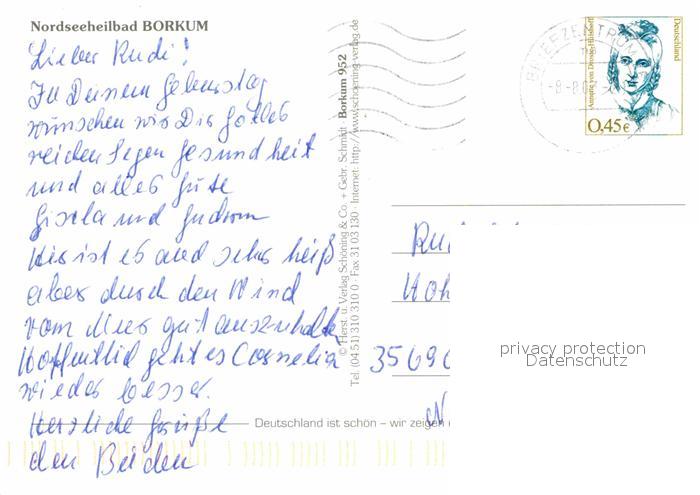 Nordseeheilbad BORKUM
Lieber Rudi!
Zu Deinem Geburtstag
wünschen wir Dir Gottes
reichen Segen Gesundheit
und alles Gute
Gisela und Gudrun
Hier ist es auch sehr heiß
aber durch den Wind
vom Meer gut auszuhalten
Hoffentlich geht es Cornelia
wieder besser.
Herzliche Grüße
den Beiden
© Herst. u. Verlag Schöning & Co. + Gebr. Schmidt Borkum 952
Tel. (04 51) 310 310 0 · Fax 31 03 130 · Internet: http://www.schoening-verlag.de
Deutschland ist schön – wir zeigen
BRIEFZENTRUM
Annette von Droste-Hülshoff
Deutschland
0,45€
35690
privacy protection
Datenschutz